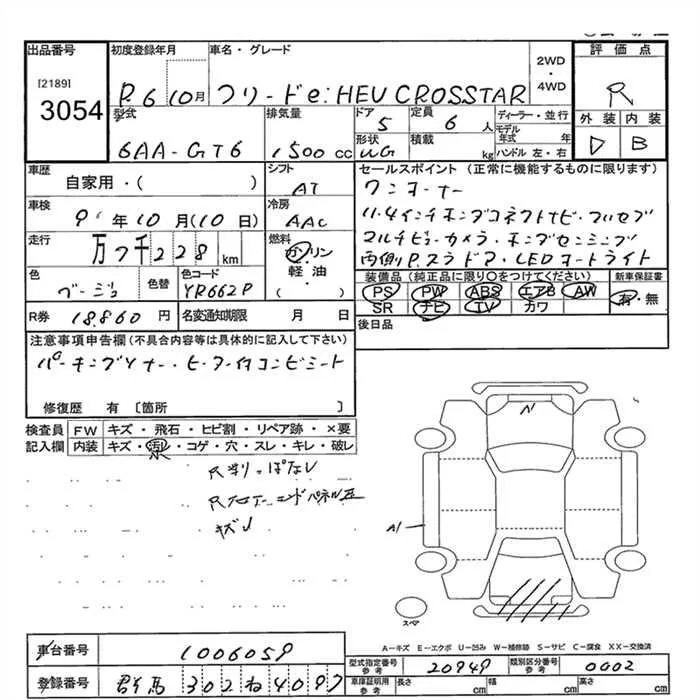 出品番号
[2189]
3054
初度登録年月
R.6 10月
車名・グレード
フリードe:HEV CROSSTAR
2WD
・
4WD
評価点
R
外装 内装
D B
型式
6AA-GT6
排気量
1500cc
ドア
5
定員
6人
形状
WG
積載
kg
ディーラー・並行
モデル年式 年
ハンドル 左・右
車歴
自家用・( )
シフト
AT
車検
9年10月(10日)
冷房
AAC
走行
万7千228km
燃料
ガソリン
軽油
( )
色
ベージュ
色替
色コード
YR662P
R券 18,860円
名変通知期限 月 日
セールスポイント(正常に機能するものに限ります)
ワンオーナー
11.4インチホンダコネクトナビ・フルセグ
マルチビューカメラ・ホンダセンシング
両側P.スラドア・LEDヘッドライト
装備品(純正品に限り〇をつけてください)
PS PW ABS エアB AW
SR ナビ TV カワ
新車保証書
有・無
後日品
注意事項申告欄(不具合内容等は具体的に記入して下さい)
パーキングソナー・ヒーター付コンビシート
修復歴 有 〔箇所 〕
検査員記入欄
FW キズ・飛石・ヒビ割・リペア跡・×要
内装 キズ・汚れ・コゲ・穴・スレ・キレ・破レ
Rエンドパネル
キズ
A1
A1
スペア
A-キズ E-エクボ U-凹み W-補修跡 S-サビ C-腐食 XX-交換済
車台番号 1006059
登録番号 群馬 302 ね 4097
型式指定番号 参考 20949
類別区分番号 参考 0002
車庫証明用 参考 長さ cm 幅 cm 高さ cm